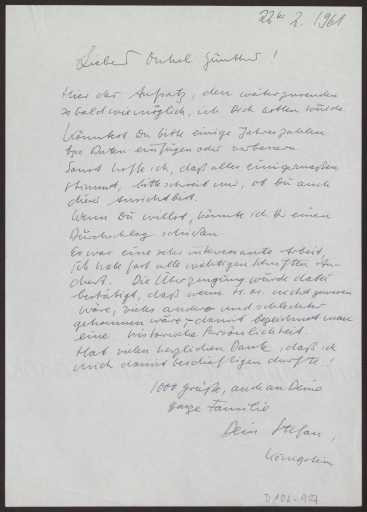 22. 2. 1961
Lieber Onkel Günther!
Hier der Aufsatz, den weiterzusenden
so bald wie möglich, ich Dich bitten würde.
Könntest Du bitte einige Jahreszahlen
bzw Daten einfügen oder verbessern
Sonst hoffe ich, daß alles einigermaßen
stimmt, bitte schreib mir, ob Du auch
dieser Ansicht bist.
Wenn Du willst, könnte ich Dir einen
Durchschlag schicken.
Es war eine sehr interessante Arbeit,
ich habe fast alle wichtigen Schriften
Die Überzeugung wurde dabei
bestätigt, daß wenn nicht gewesen
wäre, vieles anders und schlechter
gekommen wäre, – damit bezeichnet man
eine historische Persönlichkeit.
Hab vielen herzlichen Dank, daß ich
mich damit beschäftigen durfte!
1000 Grüße, auch an Deine
ganze Familie
Dein Stefan,
Königstein